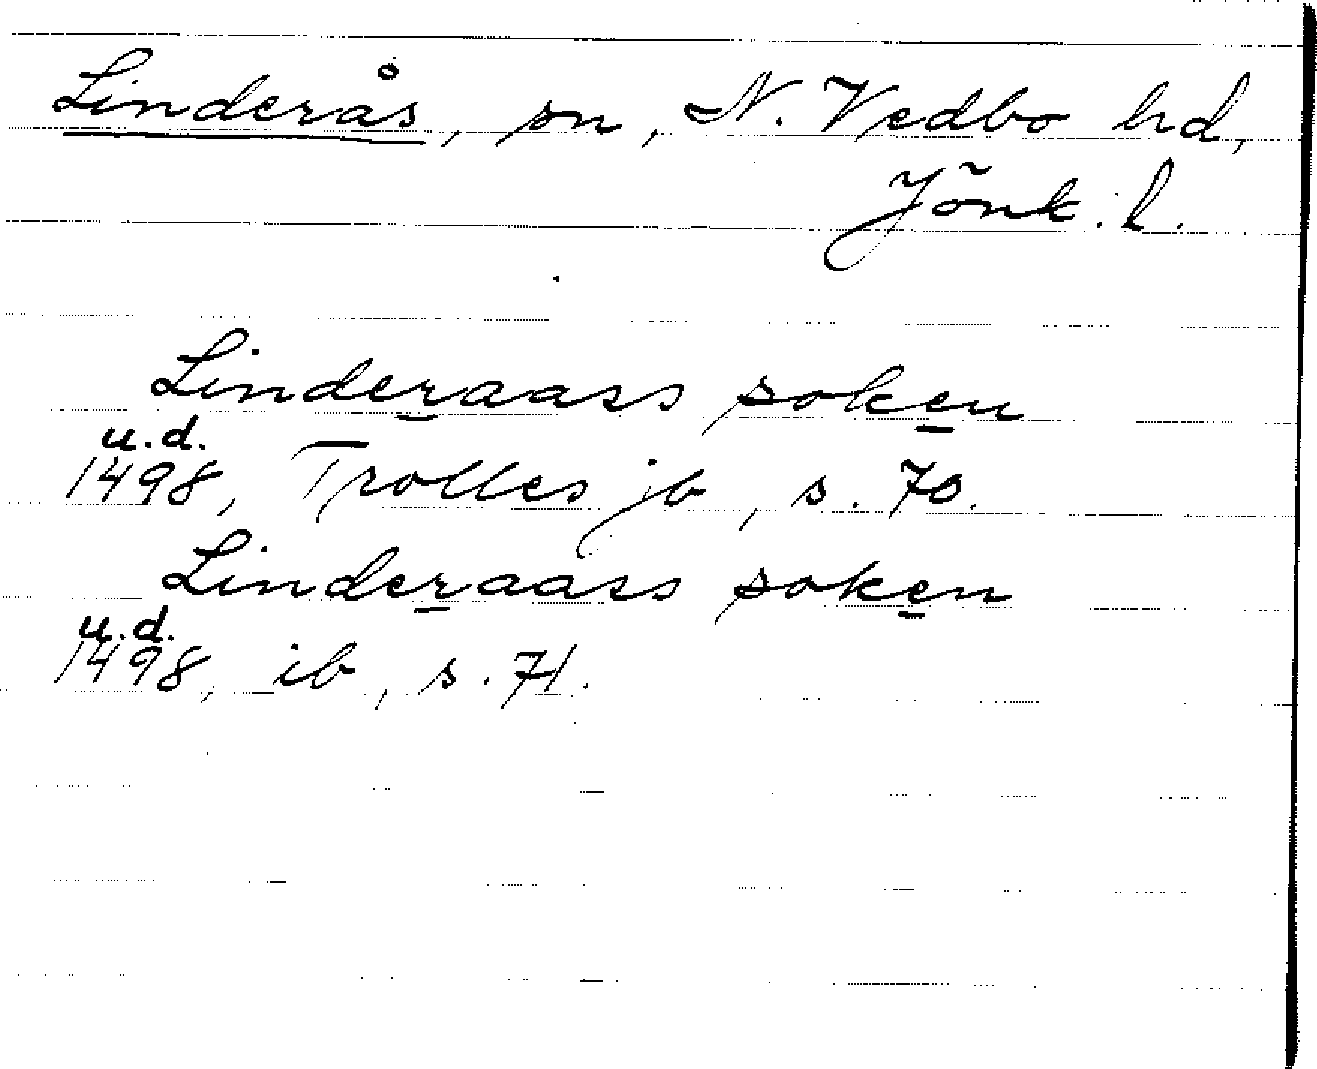 Linderås, sn, N. Vedbo hd,
Jönk. l.
Linderaass soken
u.d.
1498, Trolles jb, s. 70.
Linderaass soken
u.d.
1498, ib, s. 71.